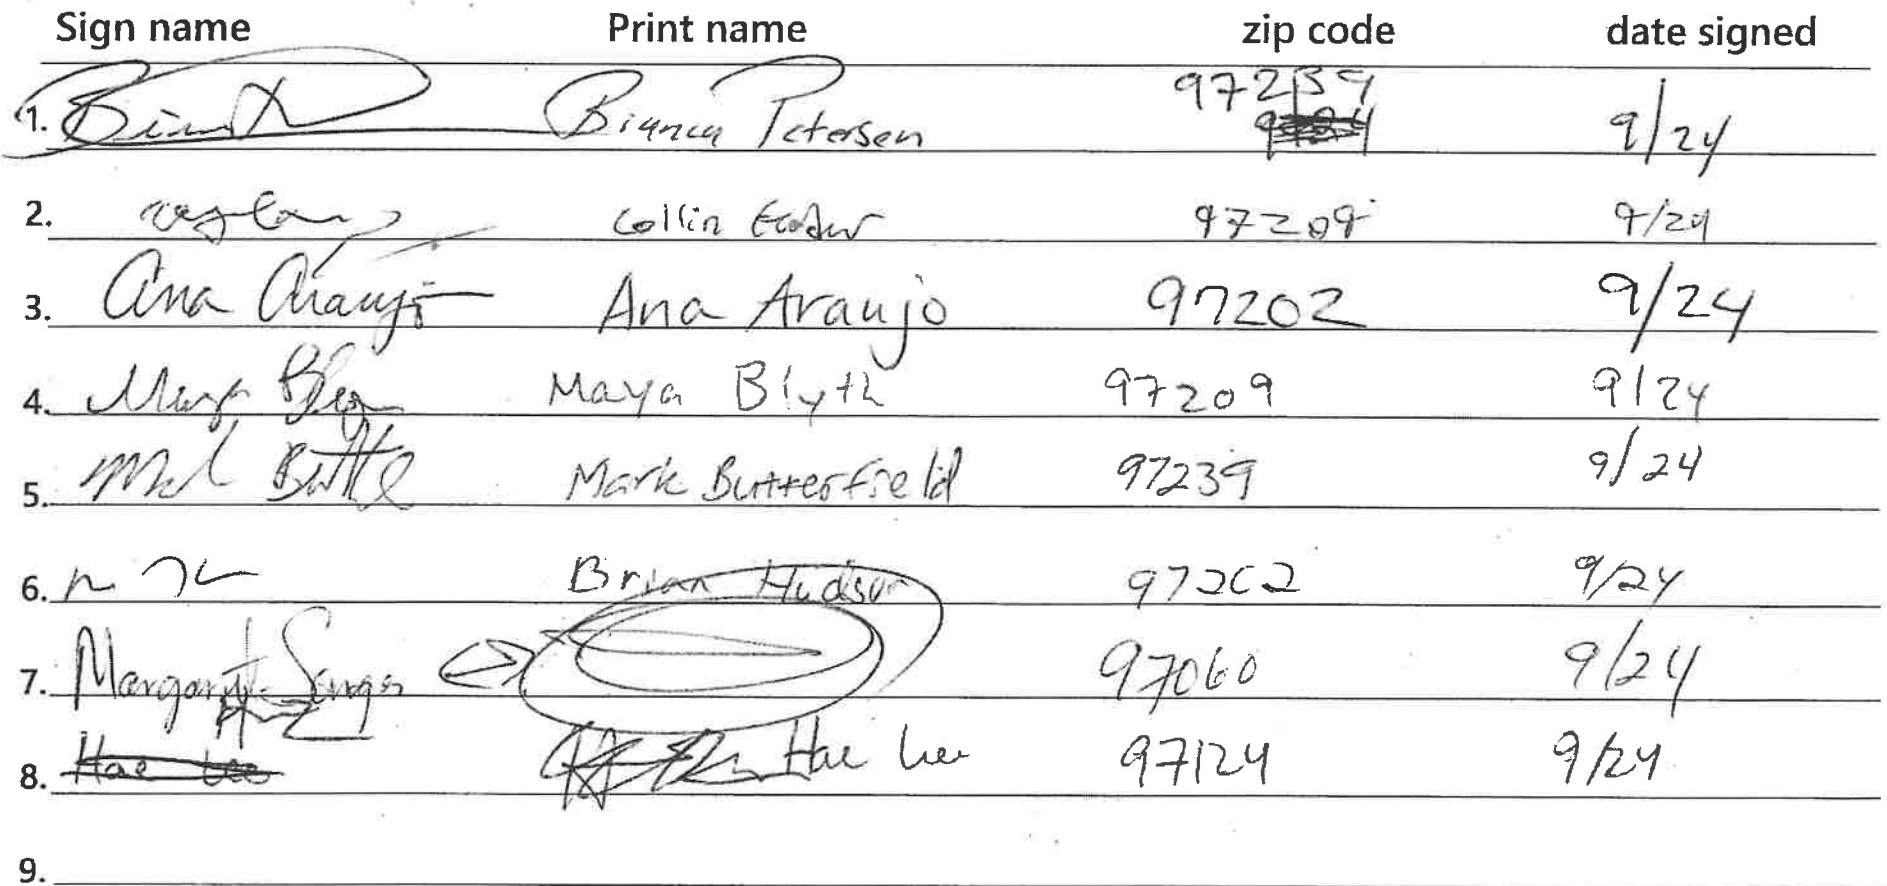 Sign name Print name zip code date signed
1. Bianca Petersen 97239 9/24
2. Collin 97209 9/24
3. Ana Araujo Ana Araujo 97202 9/24
4. Maya Maya Blyth 97209 9/24
5. Mark Butterfield 97239 9/24
6. Brian Hudson 97202 9/24
7. Margaret Sanger 97060 9/24
8. Hae Lee Hae Lee 97124 9/24
9.